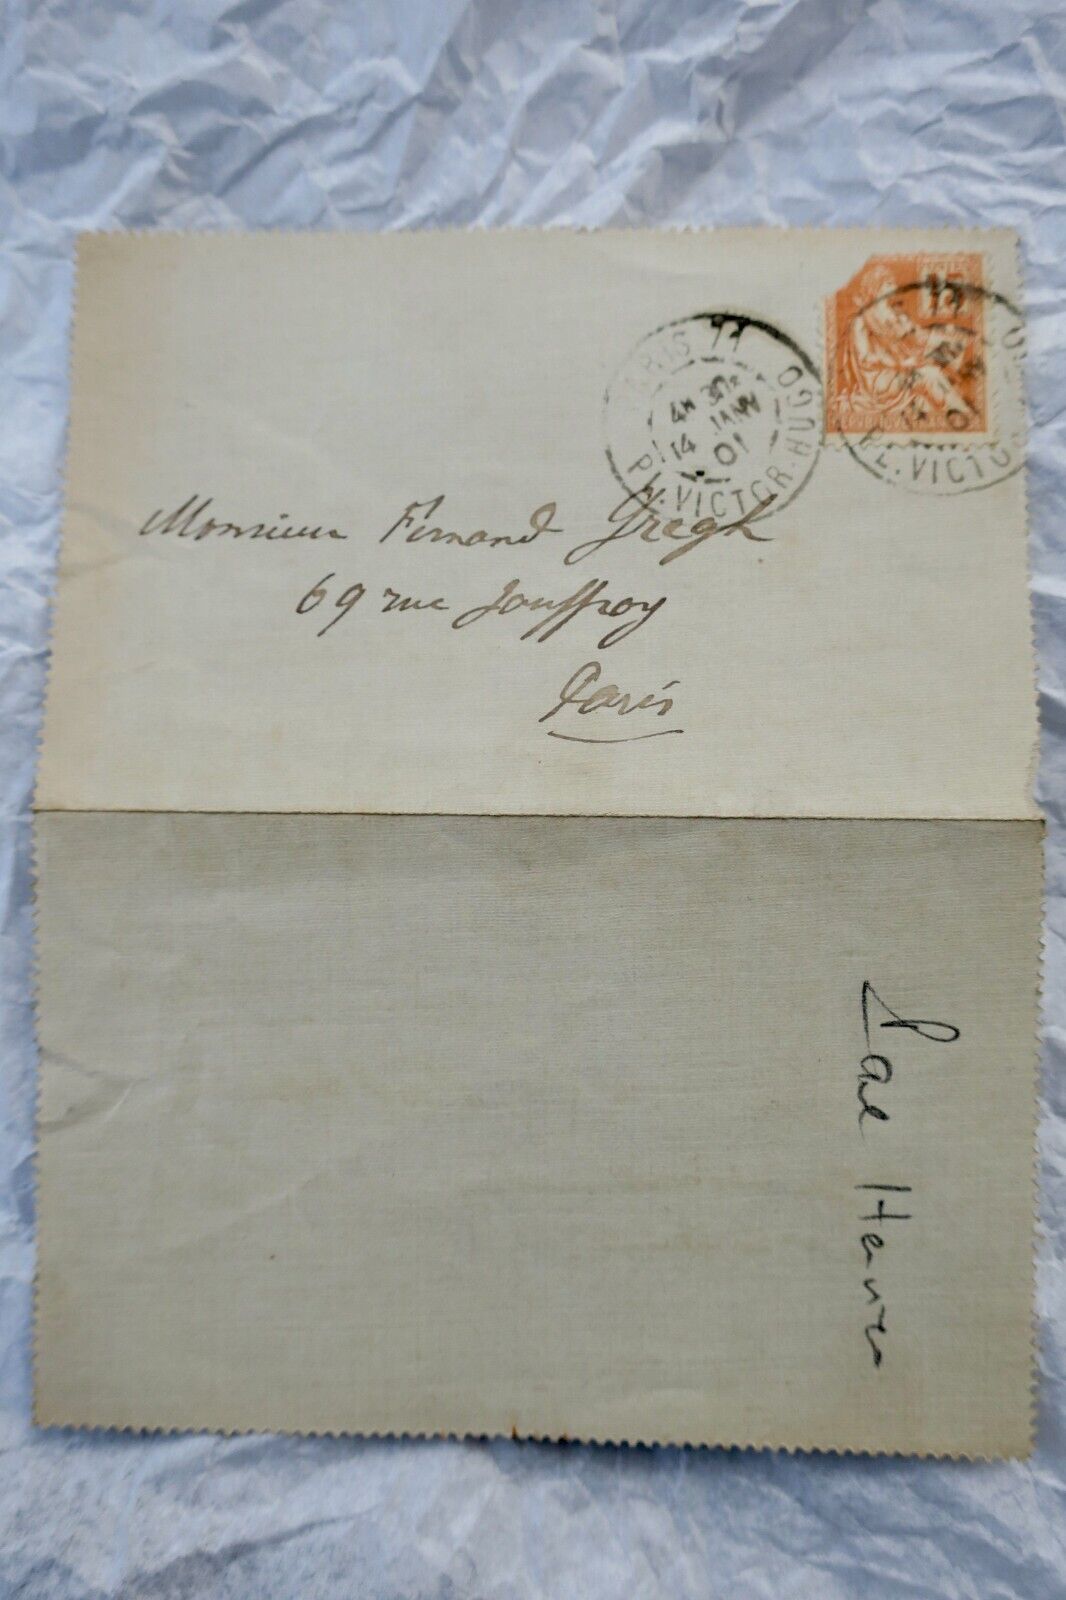 PARIS 71
4H 30
14 JANV
01
PL. VICTOR-HUGO
15
Monsieur Fernand Gregh
69 rue Jouffroy
Paris
Paul